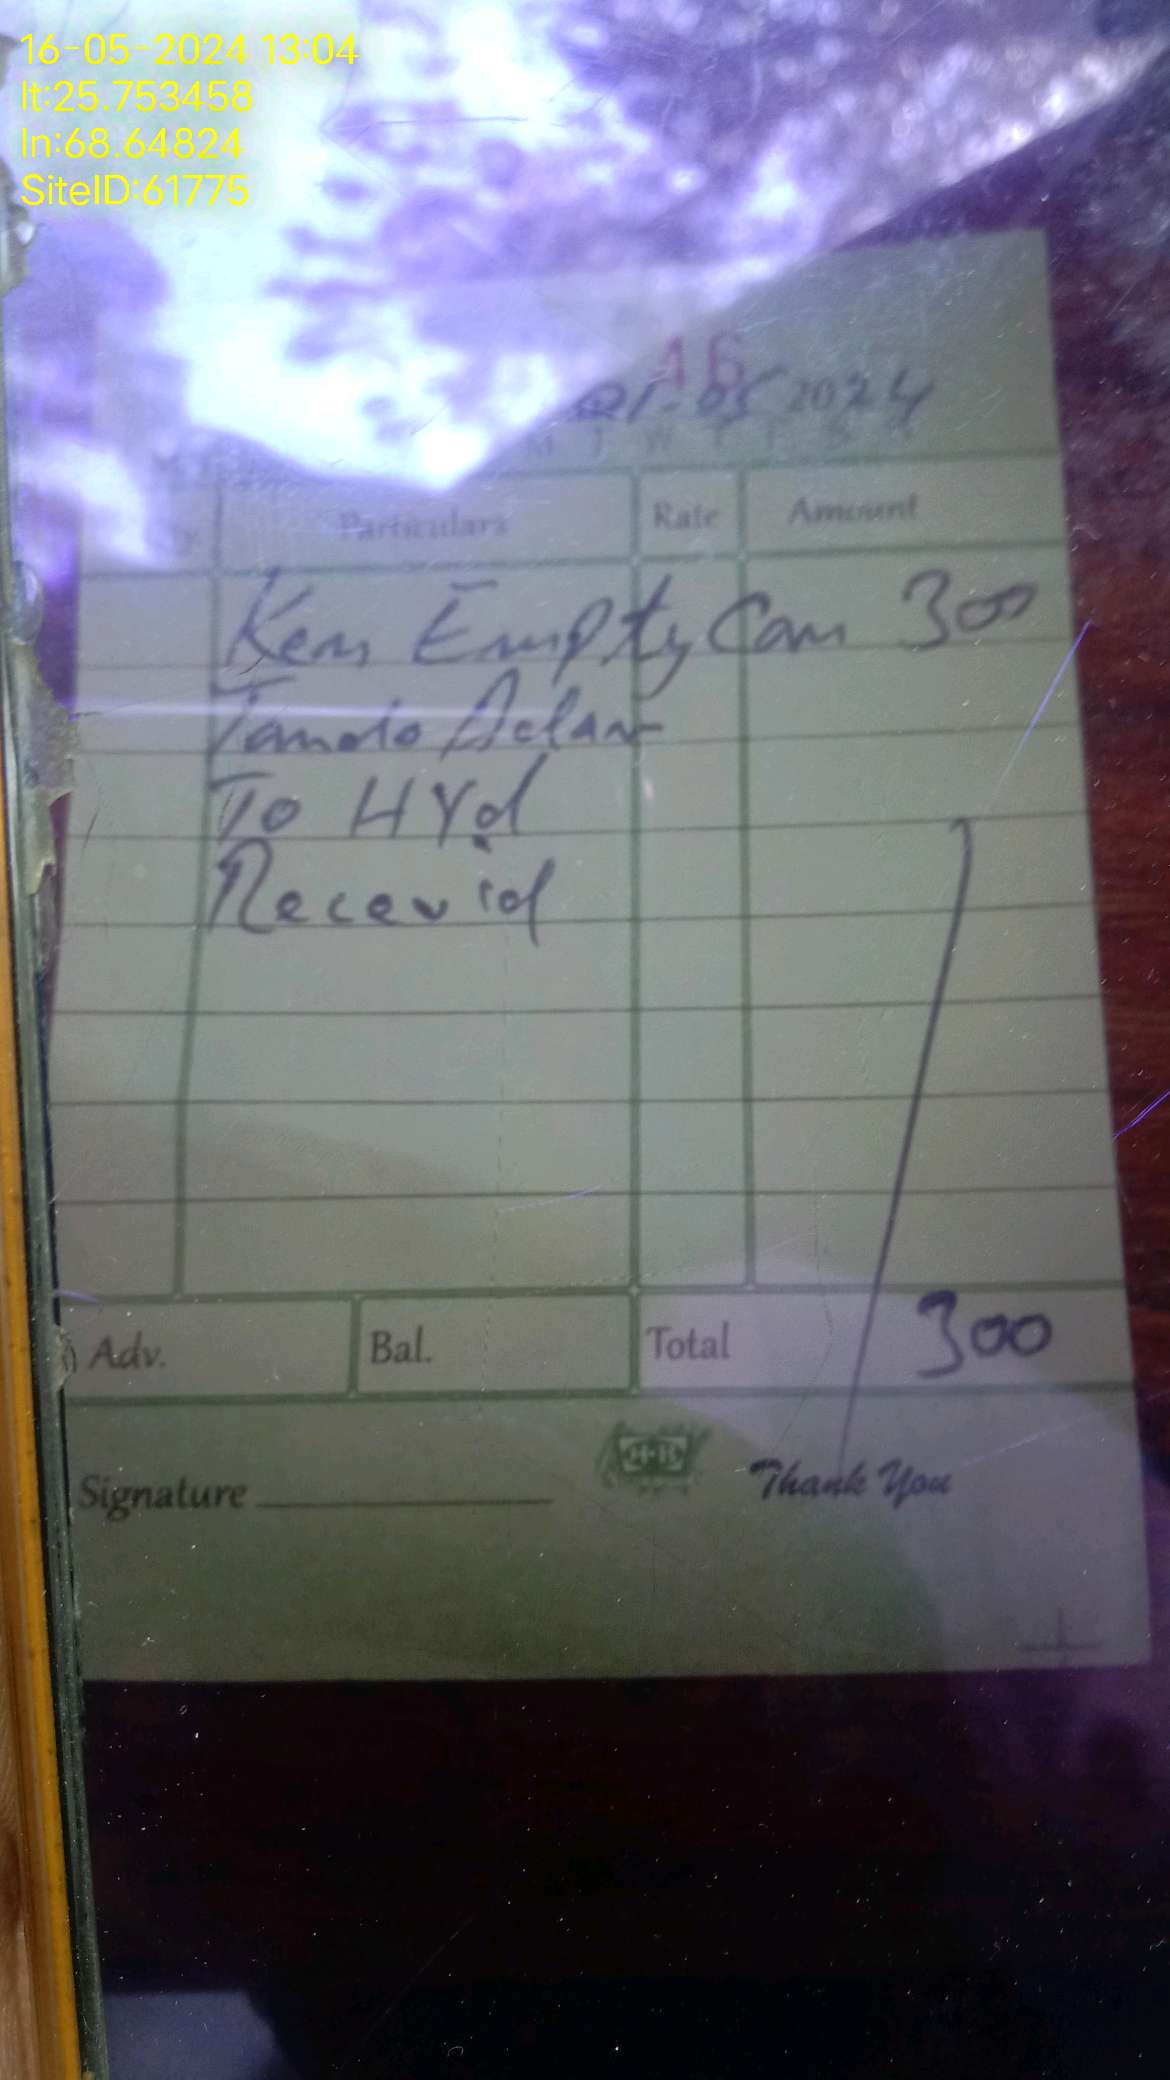 16-05-2024 13:04
lt:25.753458
ln:68.64824
SiteID:61775
16
01-05 2024
M T W T F S S
Particulars Rate Amount
Ken Empty Can 300
Tando Adam
To HYd
Recevid
Adv. Bal. Total 300
Signature Thank You